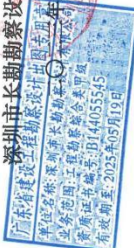 深圳市长勘勘察设
二年
广东省建设工程勘察设计出图专用章
单位名称:深圳市长勘勘
业务范围:工程勘察综合类甲级
资质证书编号:B144055545
有效期至:2025年05月19日